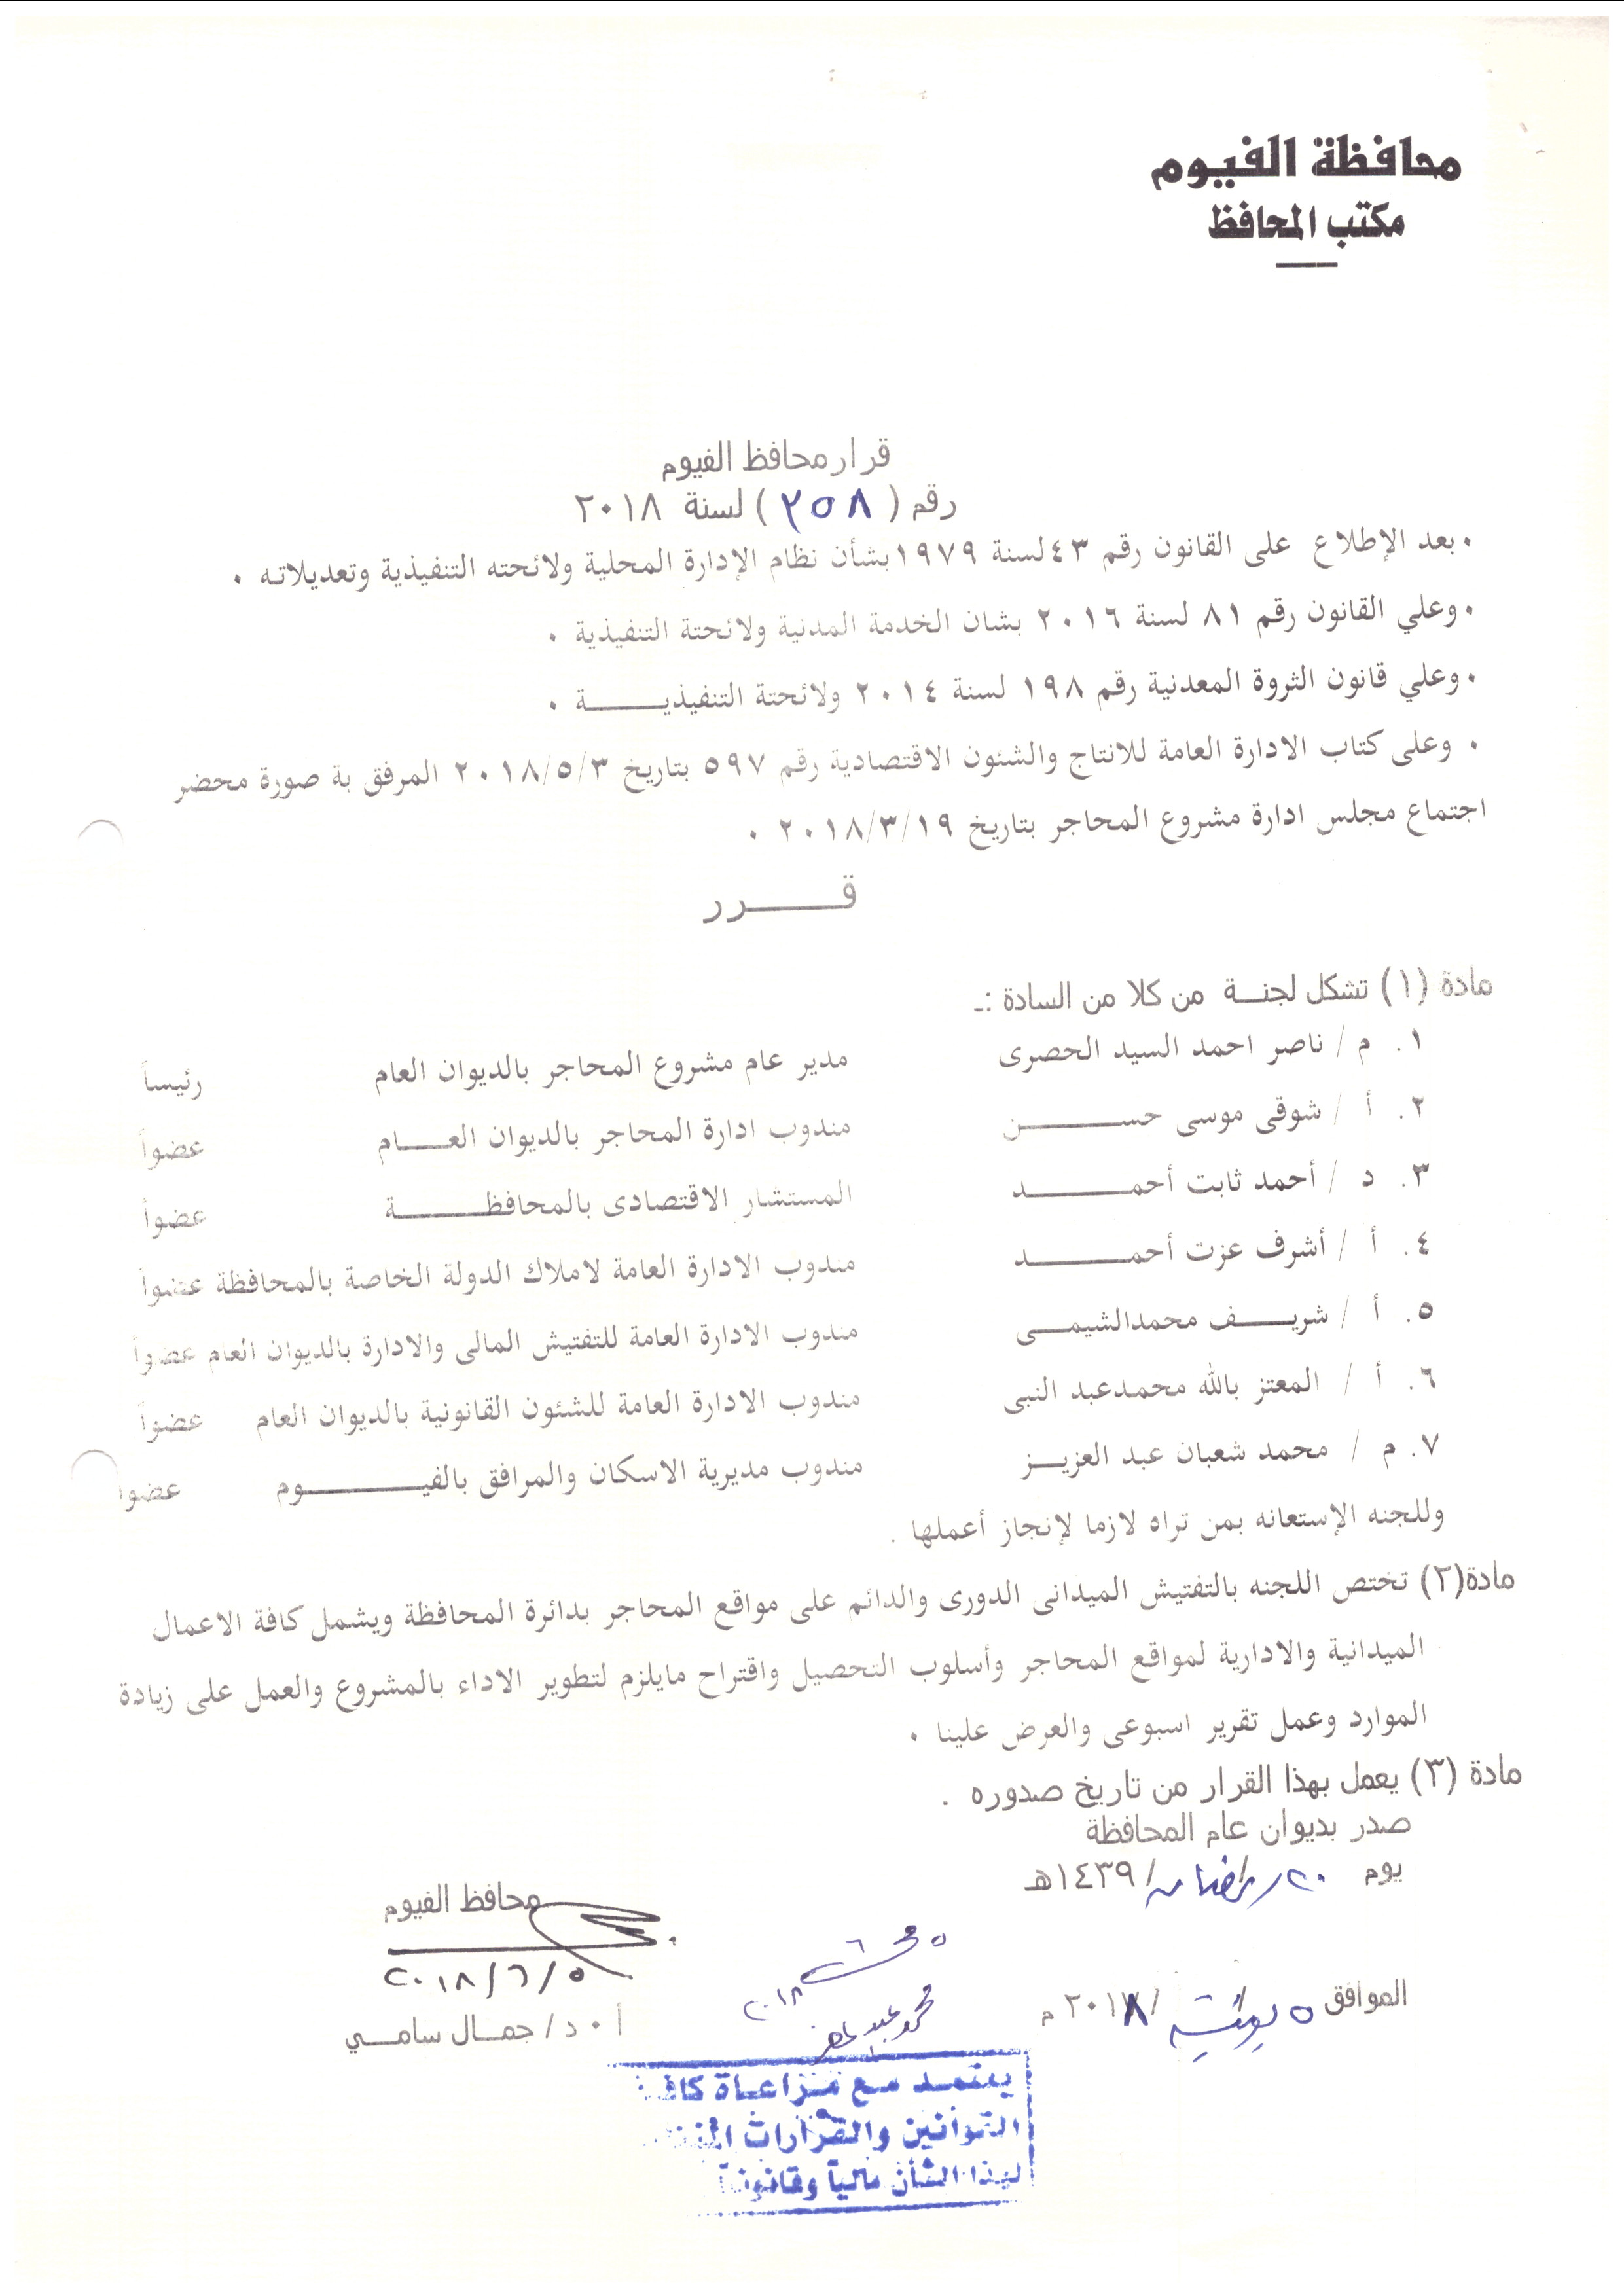 محافظة الفيوم
مكتب المحافظ
قرار محافظ الفيوم
رقم ( ٢٥٨ ) لسنة ٢٠١٨
• بعد الإطلاع على القانون رقم ٤٣ لسنة ١٩٧٩ بشأن نظام الإدارة المحلية ولائحته التنفيذية وتعديلاته •
• وعلي القانون رقم ٨١ لسنة ٢٠١٦ بشان الخدمة المدنية ولائحتة التنفيذية •
• وعلي قانون الثروة المعدنية رقم ١٩٨ لسنة ٢٠١٤ ولائحتة التنفيذيـــــة •
• وعلى كتاب الادارة العامة للانتاج والشئون الاقتصادية رقم ٥٩٧ بتاريخ ٢٠١٨/٥/٣ المرفق بة صورة محضر
اجتماع مجلس ادارة مشروع المحاجر بتاريخ ٢٠١٨/٣/١٩ •
قـــــرر
مادة (١) تشكل لجنــة من كلا من السادة :ـ
١. م / ناصر احمد السيد الحصرى مدير عام مشروع المحاجر بالديوان العام رئيساً
٢. أ / شوقى موسى حســـــــن مندوب ادارة المحاجر بالديوان العـــام عضواً
٣. د / أحمد ثابت أحمـــــــد المستشار الاقتصادى بالمحافظـــــة عضواً
٤. أ / أشرف عزت أحمـــــــد مندوب الادارة العامة لاملاك الدولة الخاصة بالمحافظة عضواً
٥. أ / شريـــف محمدالشيمـــى مندوب الادارة العامة للتفتيش المالى والادارة بالديوان العام عضواً
٦. أ / المعتز بالله محمدعبد النبى مندوب الادارة العامة للشئون القانونية بالديوان العام عضواً
٧. م / محمد شعبان عبد العزيــز مندوب مديرية الاسكان والمرافق بالفيـــــــوم عضواً
وللجنه الإستعانه بمن تراه لازما لإنجاز أعملها .
مادة(٢) تختص اللجنه بالتفتيش الميدانى الدورى والدائم على مواقع المحاجر بدائرة المحافظة ويشمل كافة الاعمال
الميدانية والادارية لمواقع المحاجر وأسلوب التحصيل واقتراح مايلزم لتطوير الاداء بالمشروع والعمل على زيادة
الموارد وعمل تقرير اسبوعى والعرض علينا •
مادة (٣) يعمل بهذا القرار من تاريخ صدوره .
صدر بديوان عام المحافظة
يوم ٢٠ رمضان /١٤٣٩هـ
الموافق ٥ يونية /٢٠١٨ م
محافظ الفيوم
٢٠١٨/٦/٥
أ • د/ جمــال سامــي
يعتمد مع مراعاة كافة
القوانين والقرارات
لهذا الشأن مالياً وقانونياً